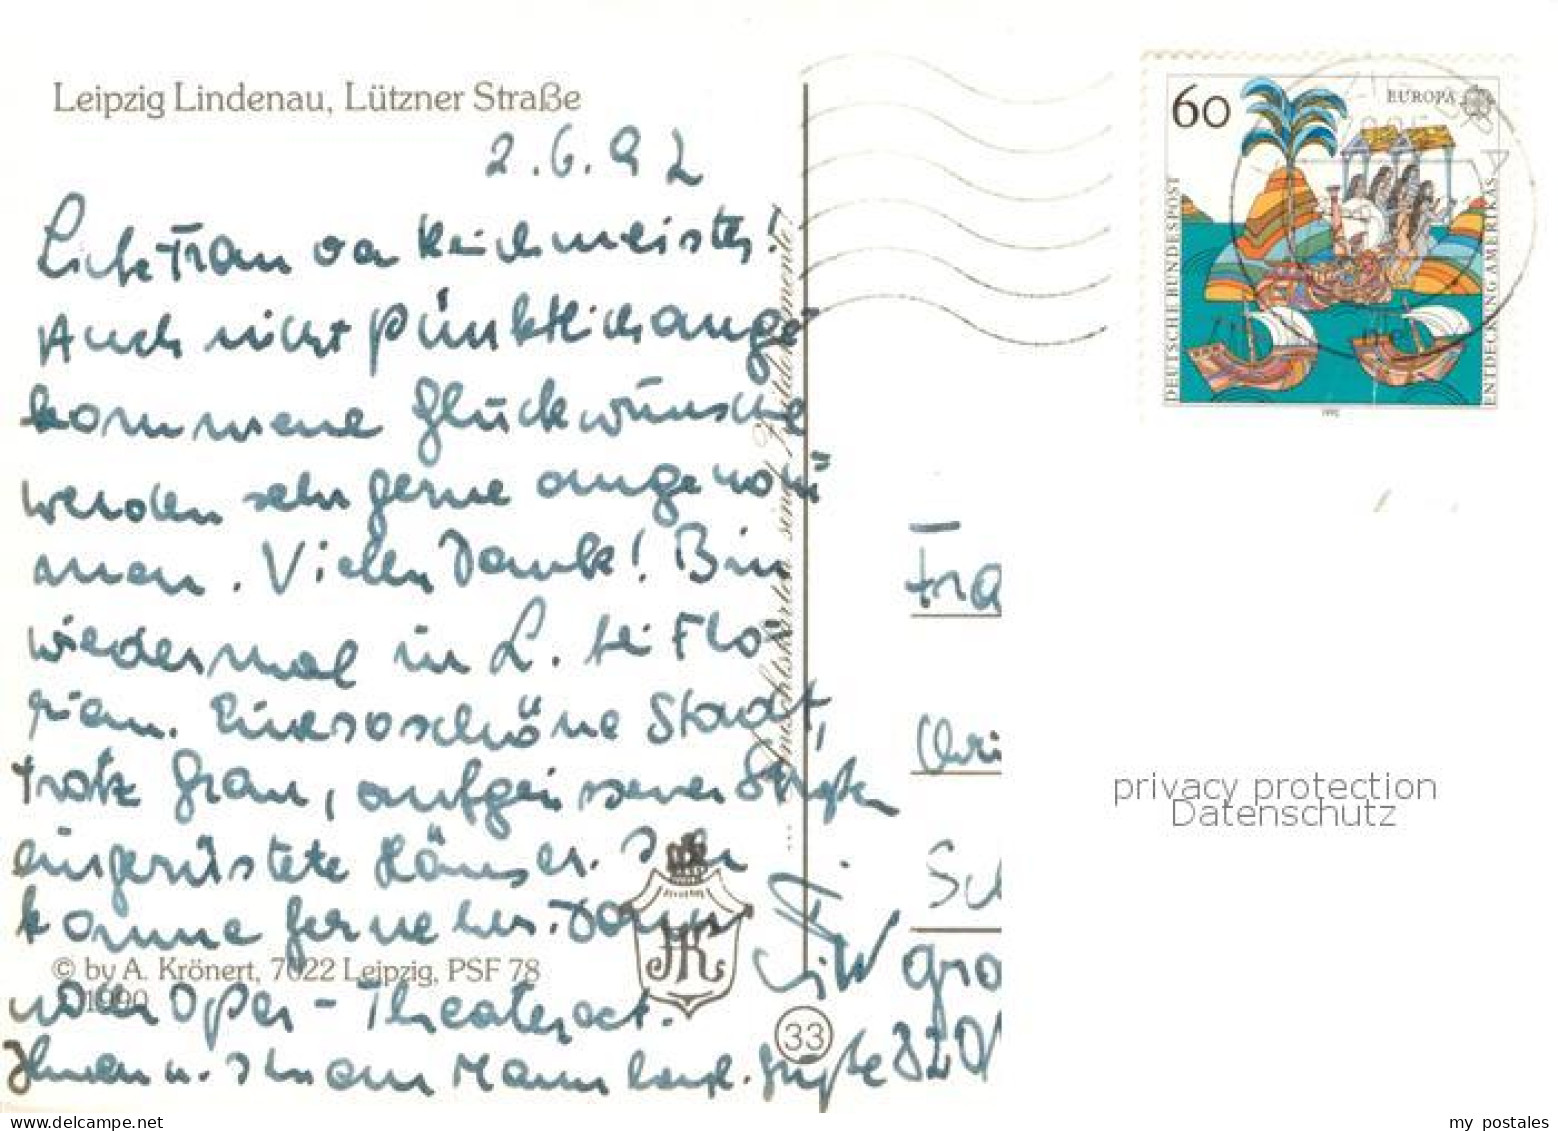 Leipzig Lindenau, Lützner Straße
2.6.92
Liebe Frau
Auch nicht pünktlich ange
kommene Glückwünsche
werden sehr gerne angenom
men. Vielen Dank! Bin
wiedermal in L. bei Flo
rian. Eine so schöne Stadt,
trotz Grau, aufgerissener Straßen
eingerüstete Häuser. Ich
komme gerne her. Dann
noch Oper-Theater etc.
Ihnen u. Ihrem Mann herzl. Grüße
© by A. Krönert, 7022 Leipzig, PSF 78
1990
JK
33
Ansichtskarten sind
60
EUROPA
DEUTSCHE BUNDESPOST
ENTDECKUNG AMERIKAS
1992
Fra
Chri
Sch
privacy protection
Datenschutz
www.delcampe.net
my_postales